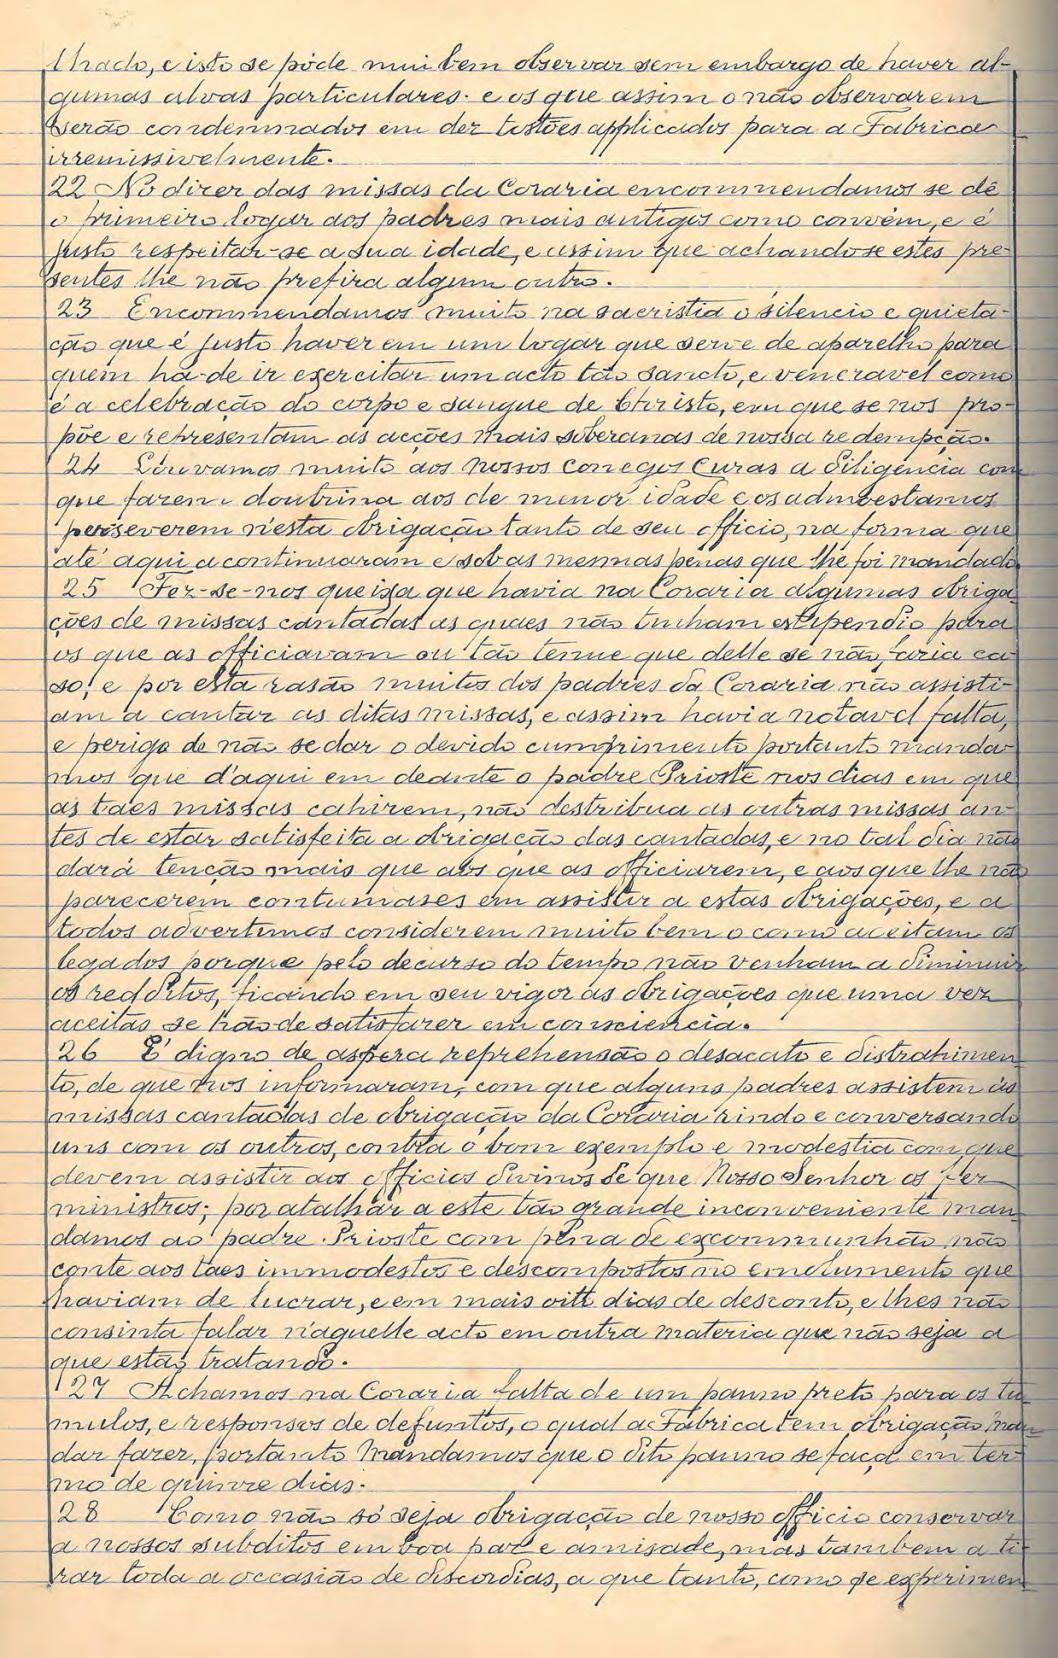 lhado, e isto se póde mui bem observar sem embargo de haver al-
gumas alvas particulares. e os que assim o não observarem
serão condemnados em dez tostões applicados para a Fabrica
irremissivelmente.
22 No dizer das missas da Coraria encommendamos se dê
o primeiro logar aos padres mais antigos como convém, e é
justo respeitar-se a sua idade, e assim que achando se estes pre-
sentes lhe não prefira algum outro.
23 Encommendamos muito na sacristia o silencio e quieta-
ção que é justo haver em um logar que serve de aparelho para
quem há-de ir exercitar um acto tão sancto, e veneravel como
é a celebração do corpo e sangue de Christo, em que se nos pro-
põe e representam as acções mais soberanas de nossa redempção.
24 Louvamos muito aos nossos conegos Curas a diligencia com
que fazem a doutrina aos de menor idade e os admoestamos
perseverem n'esta obrigação tanto de seu officio, na forma que
até aqui a continuaram e sob as mesmas penas que lhe foi mandado.
25 Fez-se-nos queixa que havia na Coraria algumas obriga
ções de missas cantadas as quaes não tinham estipendio para
os que as officiavam ou tão tenue que delle se não faria ca
so, e por esta rasão muitos dos padres da Coraria não assisti-
am a cantar as ditas missas, e assim havia notavel falta,
e perigo de não se dar o devido cumprimento portanto manda-
mos que d'aqui em deante o padre Prioste nos dias em que
as taes missas cahirem, não destribua as outras missas an-
tes de estar satisfeita a obrigação das cantadas, e no tal dia não
dará tenção mais que aos que as officiarem, e aos que lhe não
parecerem contumases em assistir a estas obrigações, e a
todos advertimos considerem muito bem o como aceitam os
legados porque pelo decurso do tempo não venham a diminuir
os redditos, ficando em seu vigor as obrigações que uma vez
aceitas se hão-de satisfazer em consciencia.
26 É digno de aspera reprehensão o desacato e distrahimen
to, de que nos informaram, com que alguns padres assistem ás
missas cantadas de obrigação da Coraria rindo e conversando
uns com os outros, contra o bom exemplo e modestia com que
devem assistir aos officios divinos de que Nosso Senhor os fez
ministros; por atalhar a este tão grande inconveniente man
damos ao padre Prioste com pena de excommunhão não
conte aos taes immodestos e descompostos no emolumento que
haviam de lucrar, e em mais oito dias de desconto, e lhes não
consinta falar n'aquelle acto em outra materia que não seja a
que estão tratando.
27 Achamos na Coraria falta de um panno preto para os tu
mulos, e responsos de defuntos, o qual a Fabrica tem obrigação man
dar fazer, portanto Mandamos que o dito panno se faça em ter-
mo de quinze dias.
28 Como não só seja obrigação de nosso officio conservar
a nossos subditos em boa paz e amisade, mas tambem a ti
rar toda a occasião de discordias, a que tanto, como se experimen